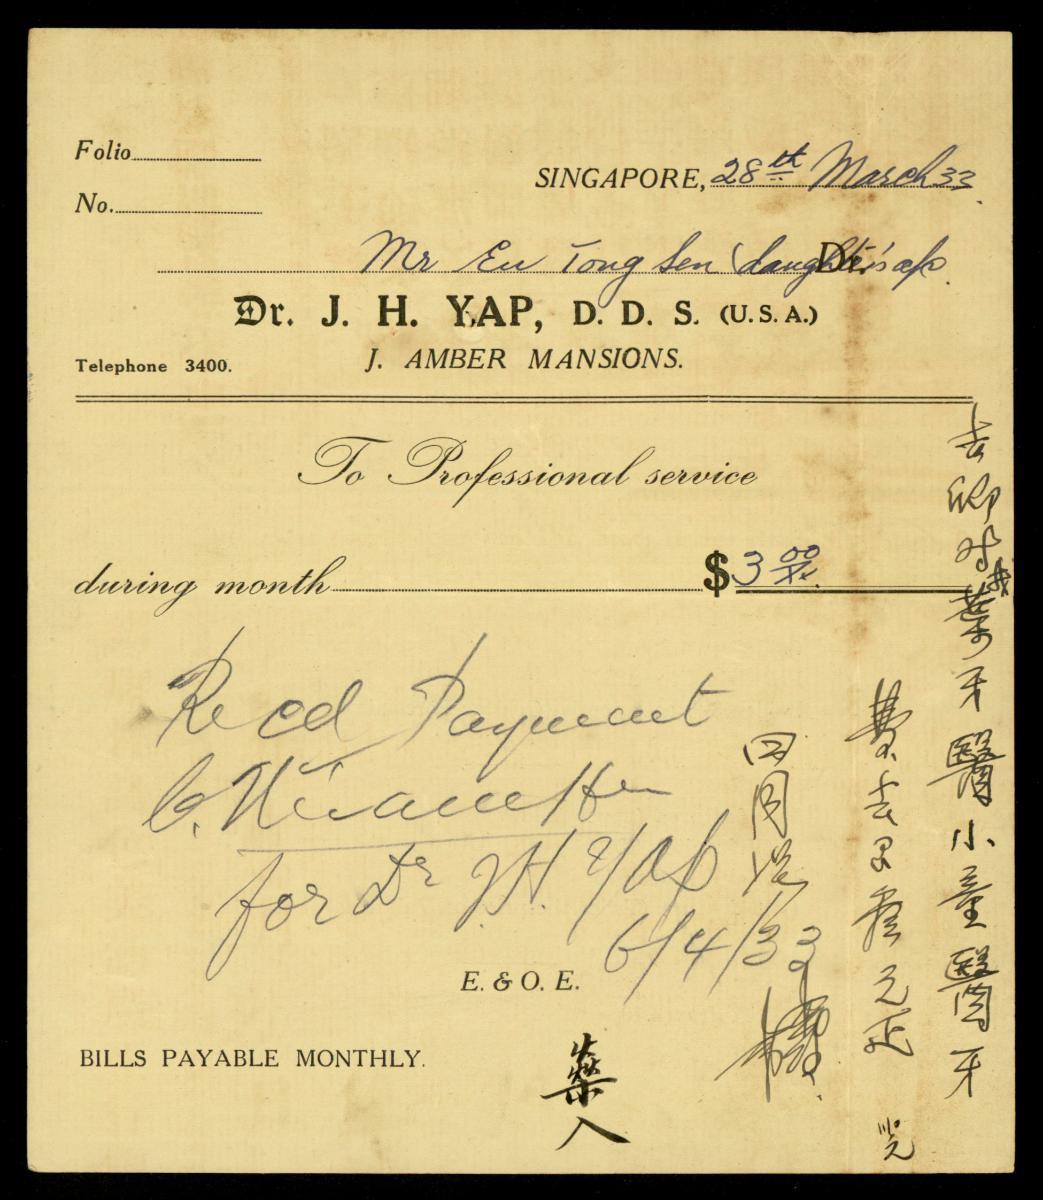 Folio
SINGAPORE, 28th March 33
No.
Mr Eu Tong Sen (daughter's a/c) Dr.
Dr. J. H. YAP, D. D. S. (U. S. A.)
Telephone 3400.
J. AMBER MANSIONS.
To Professional service
during month $3 00
Recd Payment
for Dr J. H. Yap
6/4/33
E. & O. E.
BILLS PAYABLE MONTHLY.
葉牙醫小童醫牙
費去 元正
四月
藥入